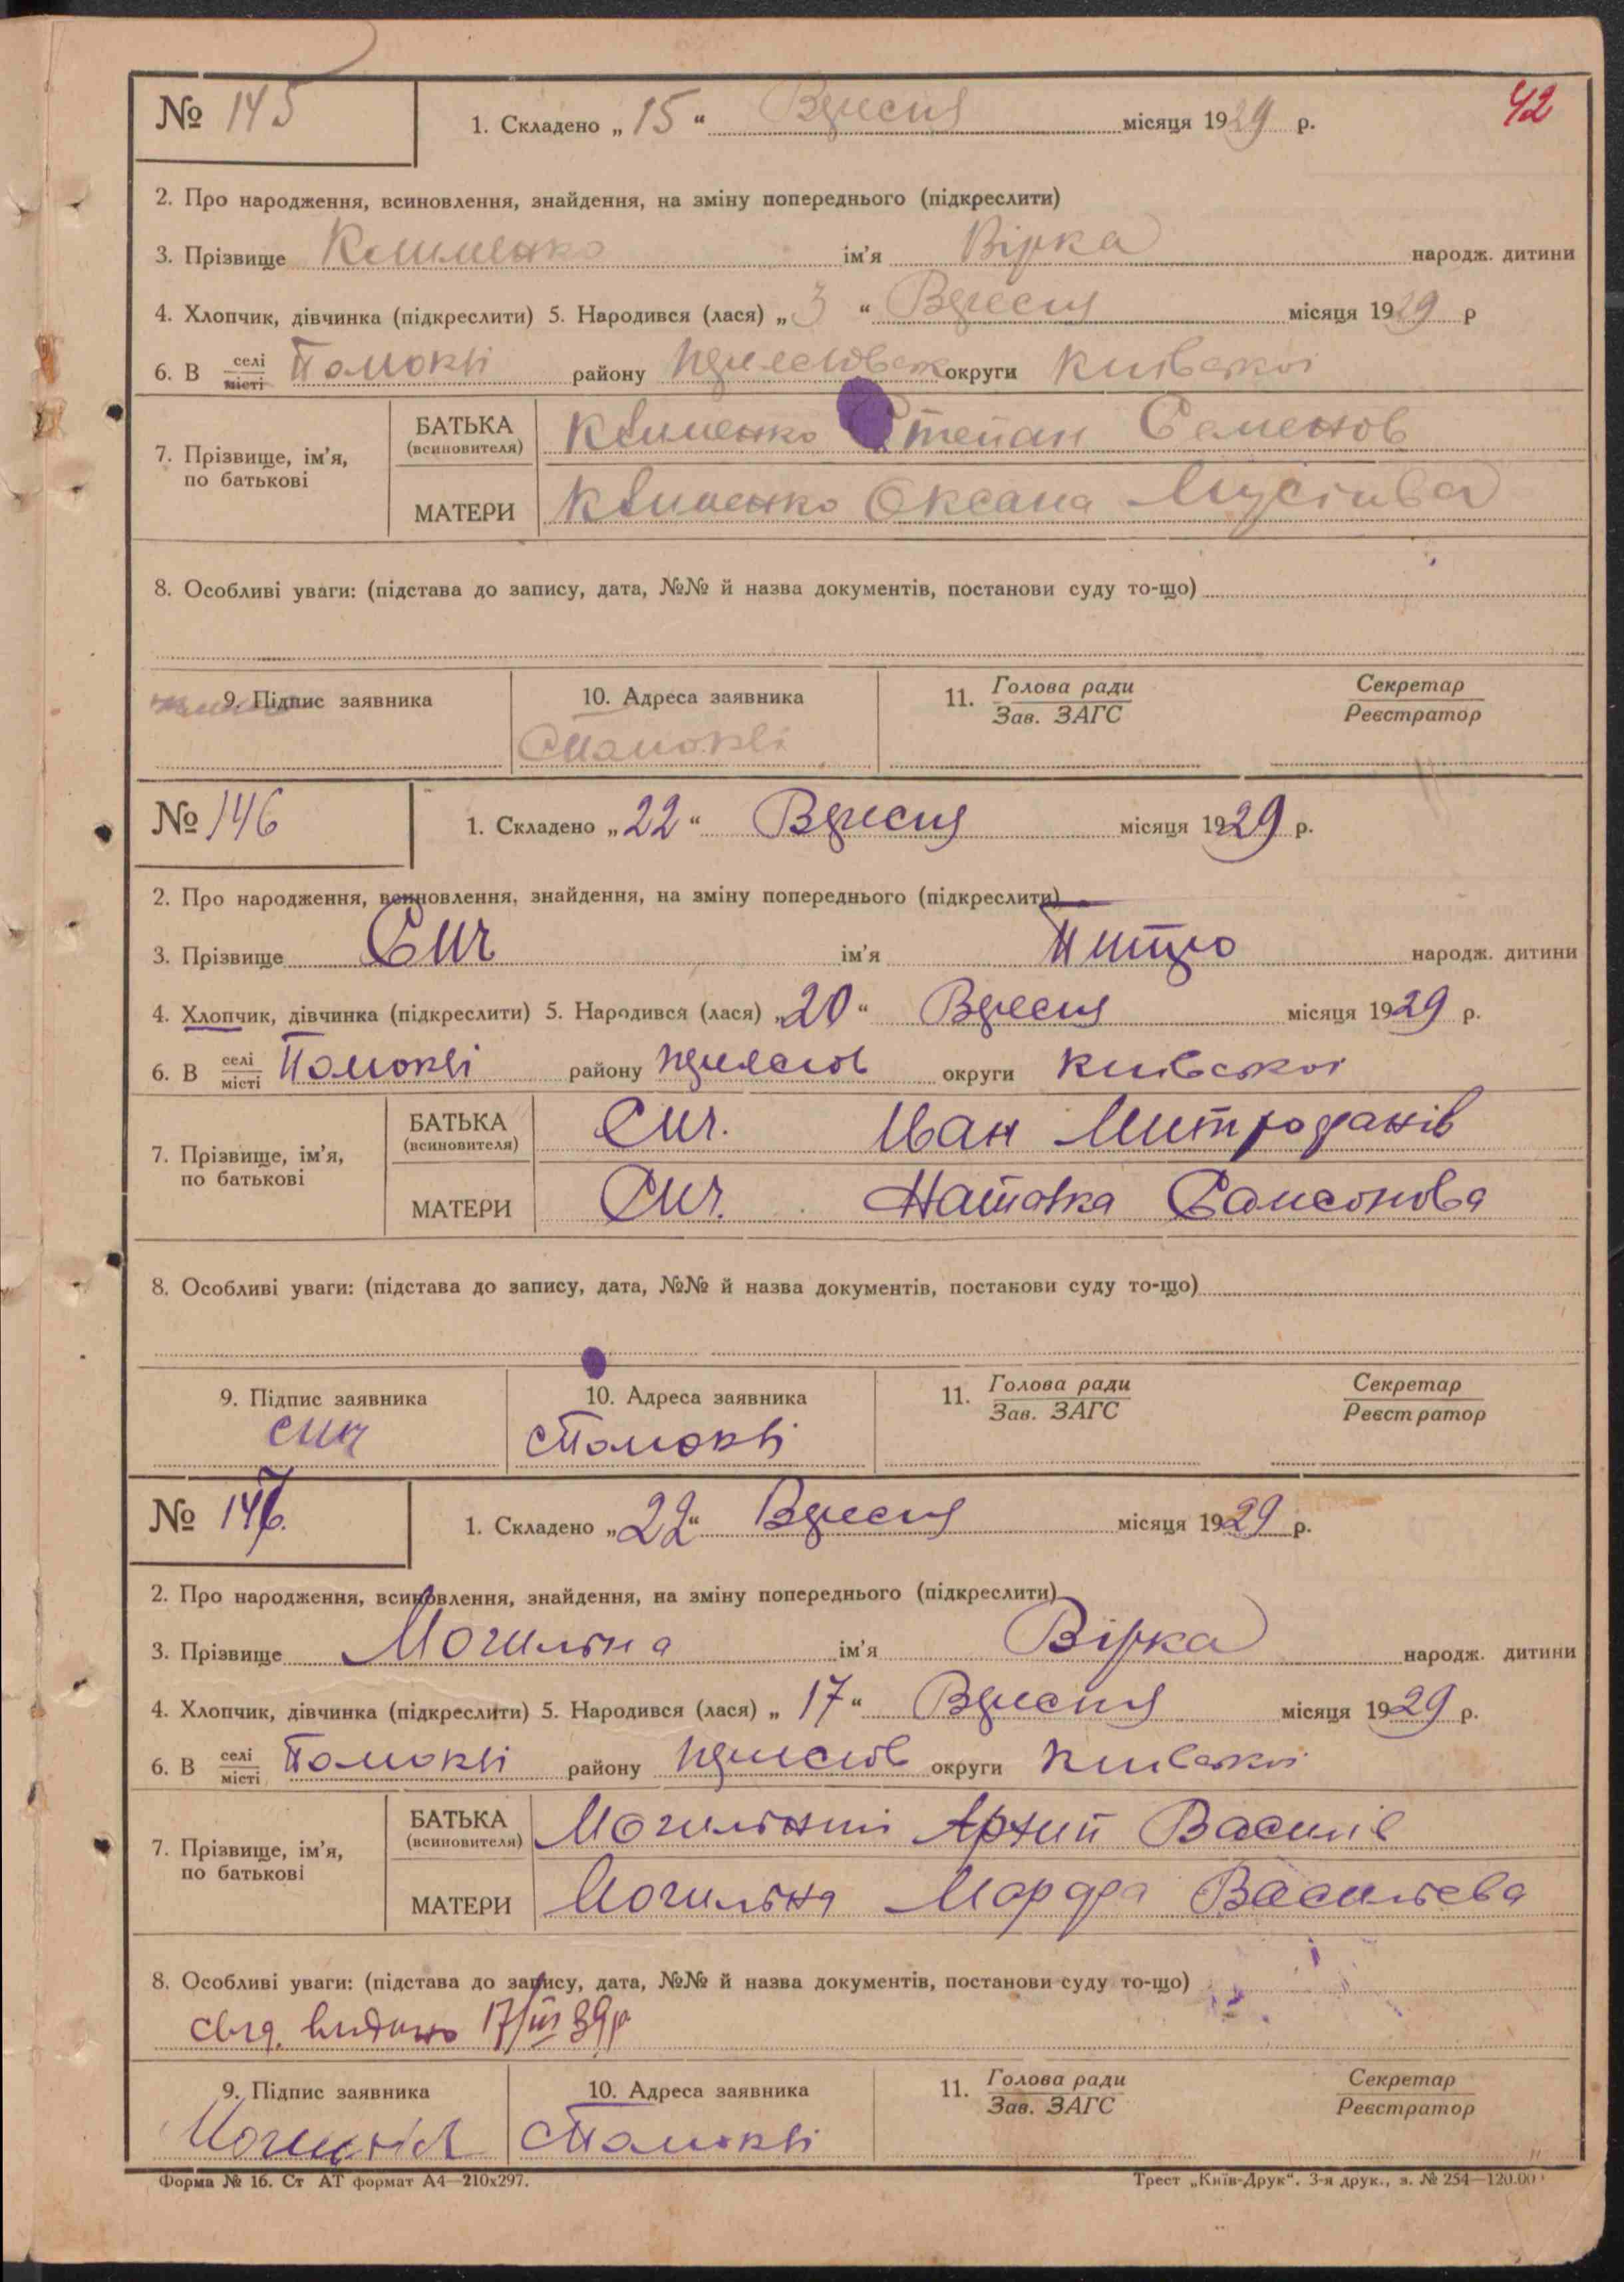 № 145 1. Складено „ 15 “ Вересня місяця 1929 р. 42
2. Про народження, всиновлення, знайдення, на зміну попереднього (підкреслити)
3. Прізвище Клименко ім'я Вірка народж. дитини
4. Хлопчик, дівчинка (підкреслити) 5. Народився (лася) „ 3 “ Вересня місяця 1929 р
6. В селі місті Помоклі району округи Київської
7. Прізвище, ім'я, по батькові
БАТЬКА (всиновителя) Клименко Степан Семенов
МАТЕРИ Клименко Оксана Мусіива
8. Особливі уваги: (підстава до запису, дата, №№ й назва документів, постанови суду то-що)
9. Підпис заявника 10. Адреса заявника 11. Голова ради Зав. ЗАГС Секретар Реєстратор
с Помоклі
№ 146 1. Складено „ 22 “ Вересня місяця 1929 р.
2. Про народження, всиновлення, знайдення, на зміну попереднього (підкреслити)
3. Прізвище Сич ім'я народж. дитини
4. Хлопчик, дівчинка (підкреслити) 5. Народився (лася) „ 20 “ Вересня місяця 1929 р.
6. В селі місті Помоклі району округи Київської
7. Прізвище, ім'я, по батькові
БАТЬКА (всиновителя) Сич. Іван Митрофанів
МАТЕРИ Сич. Наталка Самсонова
8. Особливі уваги: (підстава до запису, дата, №№ й назва документів, постанови суду то-що)
9. Підпис заявника 10. Адреса заявника 11. Голова ради Зав. ЗАГС Секретар Реєстратор
сич с Помоклі
№ 147 1. Складено „ 22 “ Вересня місяця 1929 р.
2. Про народження, всиновлення, знайдення, на зміну попереднього (підкреслити)
3. Прізвище Могильна ім'я Вірка народж. дитини
4. Хлопчик, дівчинка (підкреслити) 5. Народився (лася) „ 17 “ Вересня місяця 1929 р.
6. В селі місті Помоклі району округи Київської
7. Прізвище, ім'я, по батькові
БАТЬКА (всиновителя) Могильний Архип Василів
МАТЕРИ Могильна Марфа Васильева
8. Особливі уваги: (підстава до запису, дата, №№ й назва документів, постанови суду то-що)
свід. видано 17/III 39р
9. Підпис заявника 10. Адреса заявника 11. Голова ради Зав. ЗАГС Секретар Реєстратор
с Помоклі
Форма № 16. Ст АТ формат А4—210х297. Трест „Київ-Друк“. 3-я друк., з. № 254—120.00